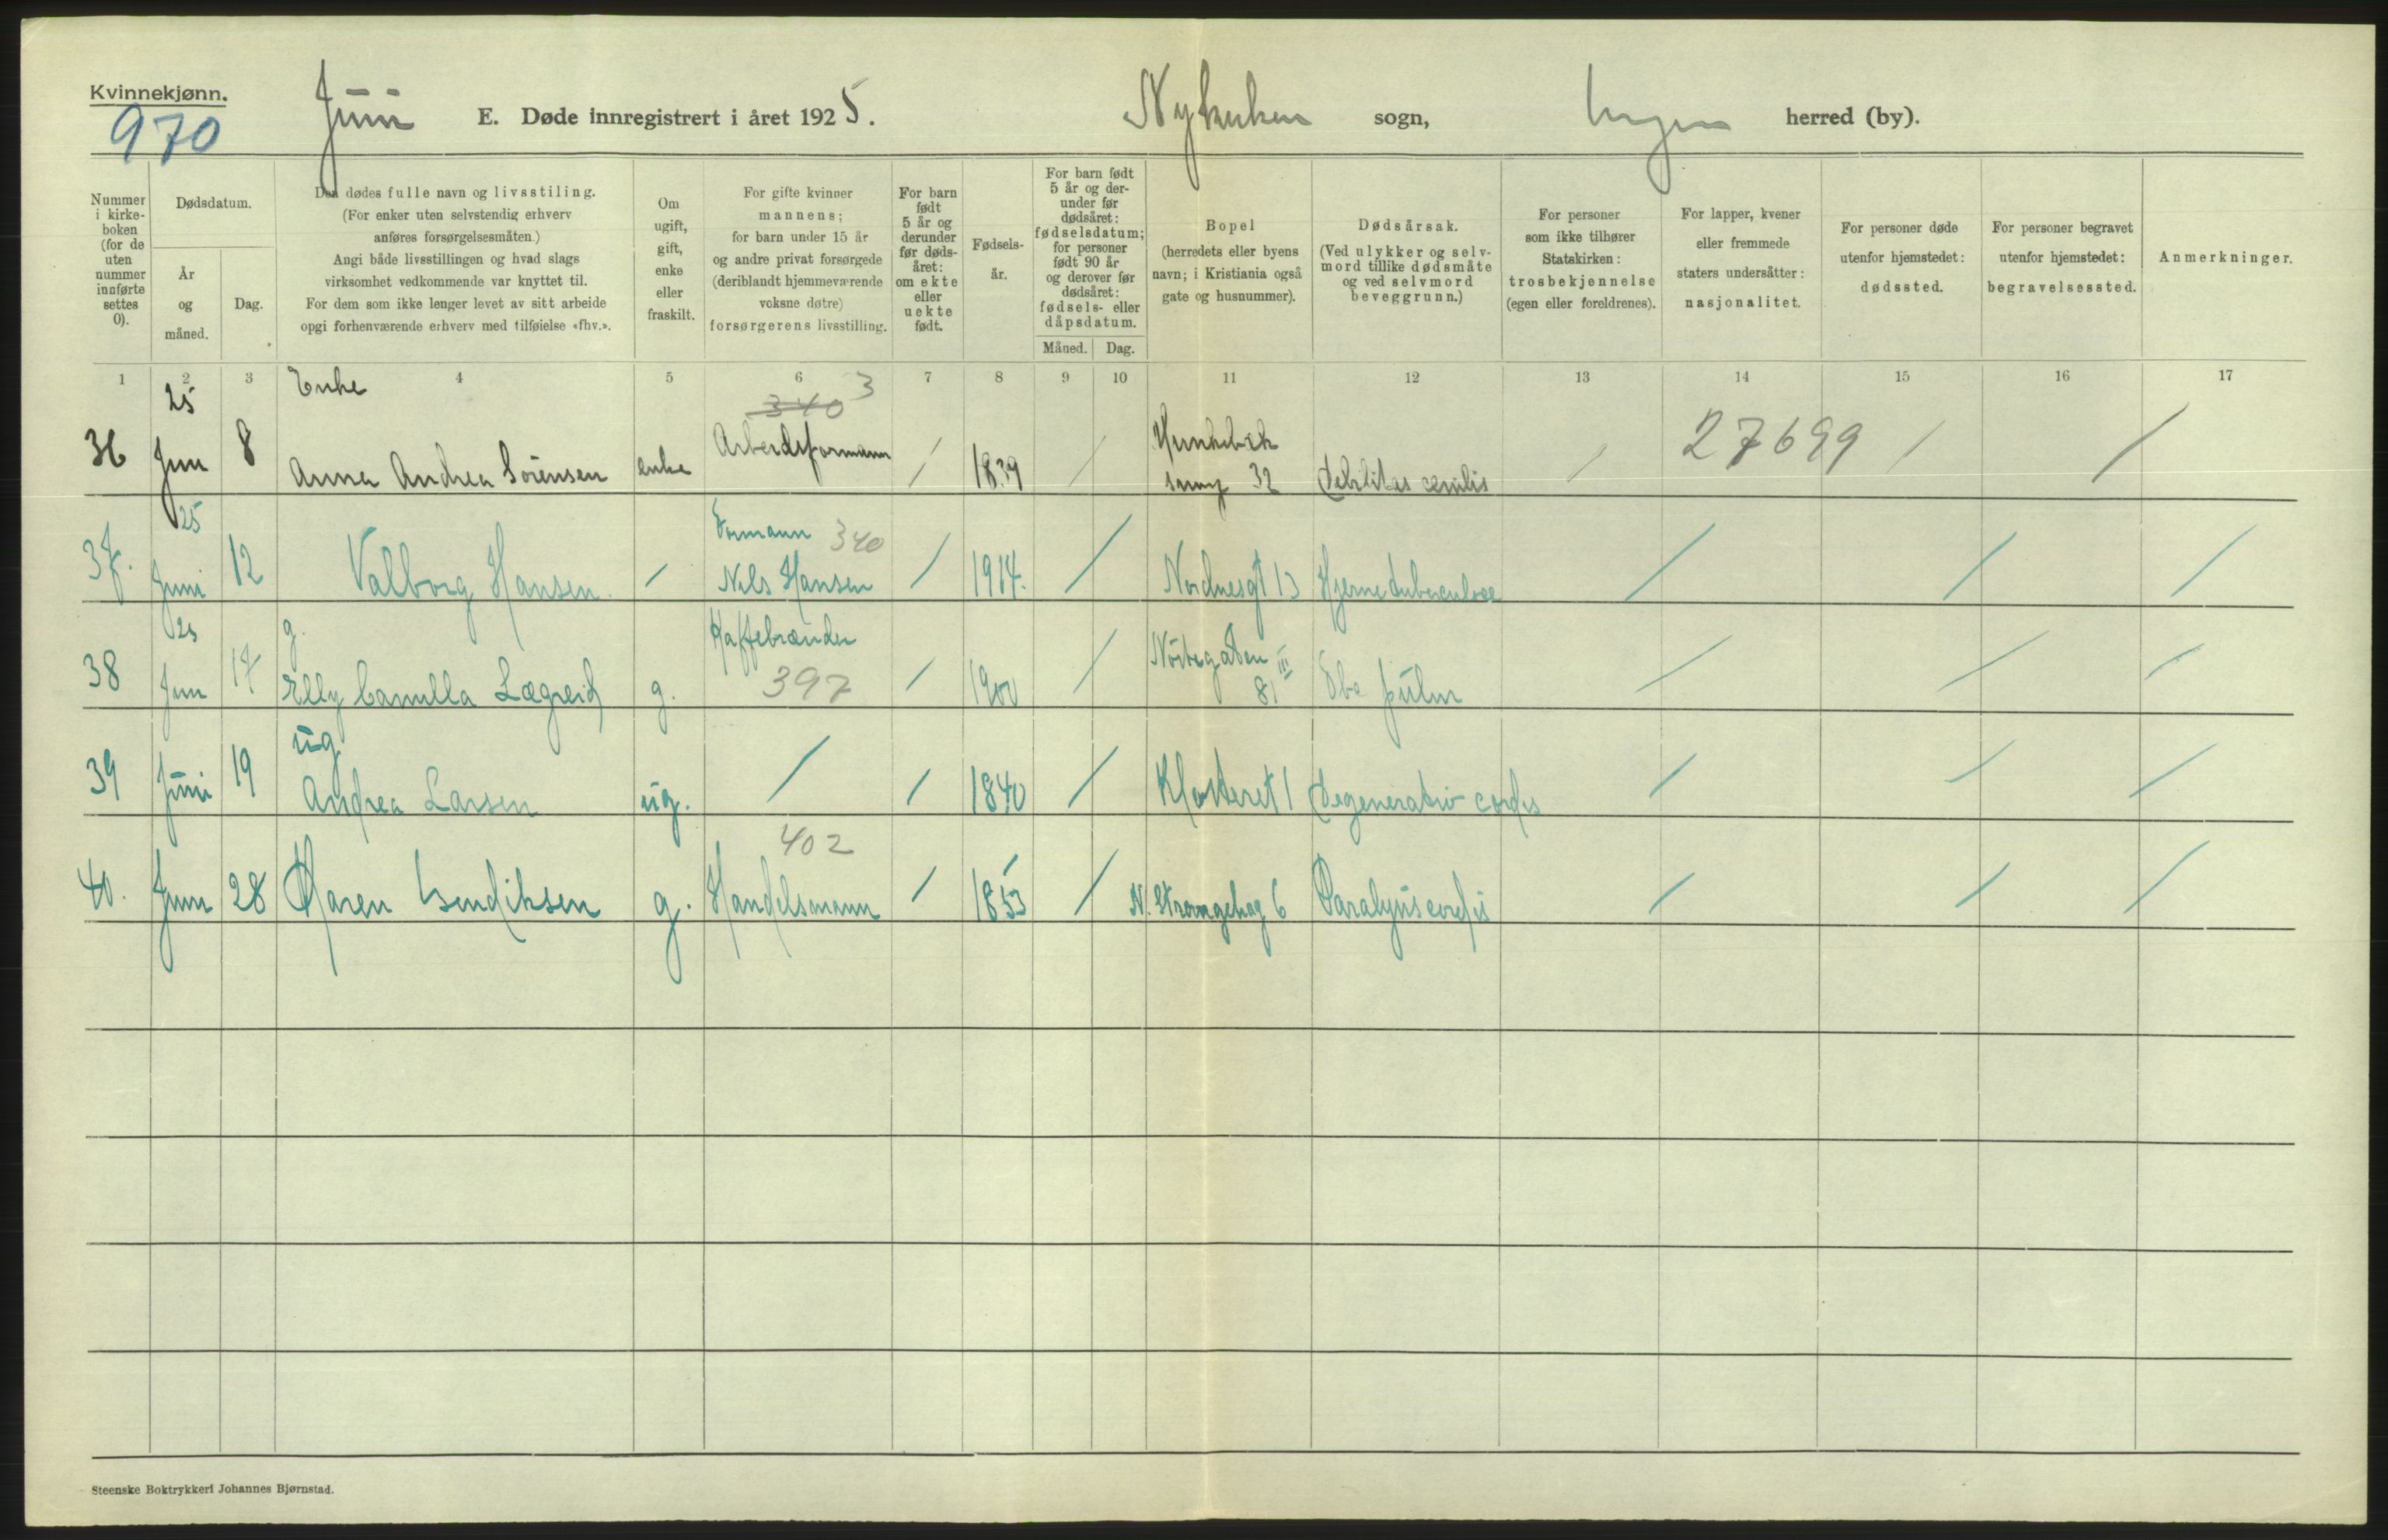 Kvinnekjønn.
970
Juni
E. Døde innregistrert i året 1925.
Nykirken sogn,
herred (by).
Nummer i kirke-boken (for de uten nummer innførte settes 0).
Dødsdatum.
År og måned.
Dag.
Den dødes fulle navn og livsstiling.
(For enker uten selvstendig erhverv
anføres forsørgelsesmåten.)
Angi både livsstillingen og hvad slags
virksomhet vedkommende var knyttet til.
For dem som ikke lenger levet av sitt arbeide
opgi forhenværende erhverv med tilføielse «fhv.».
Om ugift, gift, enke eller fraskilt.
For gifte kvinner
mannens;
for barn under 15 år
og andre privat forsørgede
(deriblandt hjemmeværende
voksne døtre)
forsørgerens livsstilling.
For barn født 5 år og derunder før døds-året: om ekte eller uekte født.
Fødsels-år.
For barn født 5 år og der-under før dødsåret: fødselsdatum; for personer født 90 år og derover før dødsåret: fødsels- eller dåpsdatum.
Måned. Dag.
Bopel
(herredets eller byens
navn; i Kristiania også
gate og husnummer).
Dødsårsak.
(Ved ulykker og selv-
mord tillike dødsmåte
og ved selvmord
beveggrunn.)
For personer
som ikke tilhører
Statskirken:
trosbekjennelse
(egen eller foreldrenes).
For lapper, kvener
eller fremmede
staters undersåtter:
nasjonalitet.
For personer døde
utenfor hjemstedet:
dødssted.
For personer begravet
utenfor hjemstedet:
begravelsessted.
Anmerkninger.
1 2 3 4 5 6 7 8 9 10 11 12 13 14 15 16 17
25 Enke 340 3
36 Jun 8 Anna Andrea Sörensen enke Arbeidsformann / 1839 / 32 Debilitas senilis / 27699 / /
25 Formann 340
37. Juni 12 Valborg Hansen / Nils Hansen / 1914. / Nordnesgt 13 Hjernetuberculose / / /
25 g. Kaffebrænder
38 Jun 17 Elly Camilla Lægreid g. 397 / 1900 / Nöstegaten 81 III Tbc pulm / / /
ug
39 Juni 19 Andrea Larsen ug. / / 1840 / Klosteret 1 Degeneratio cordis / / /
402
40. Juni 28 Karen Bendiksen g. Handelsmann / 1853 / N. Strangehag 6 Paralysis cordis / / /
Steenske Boktrykkeri Johannes Bjørnstad.